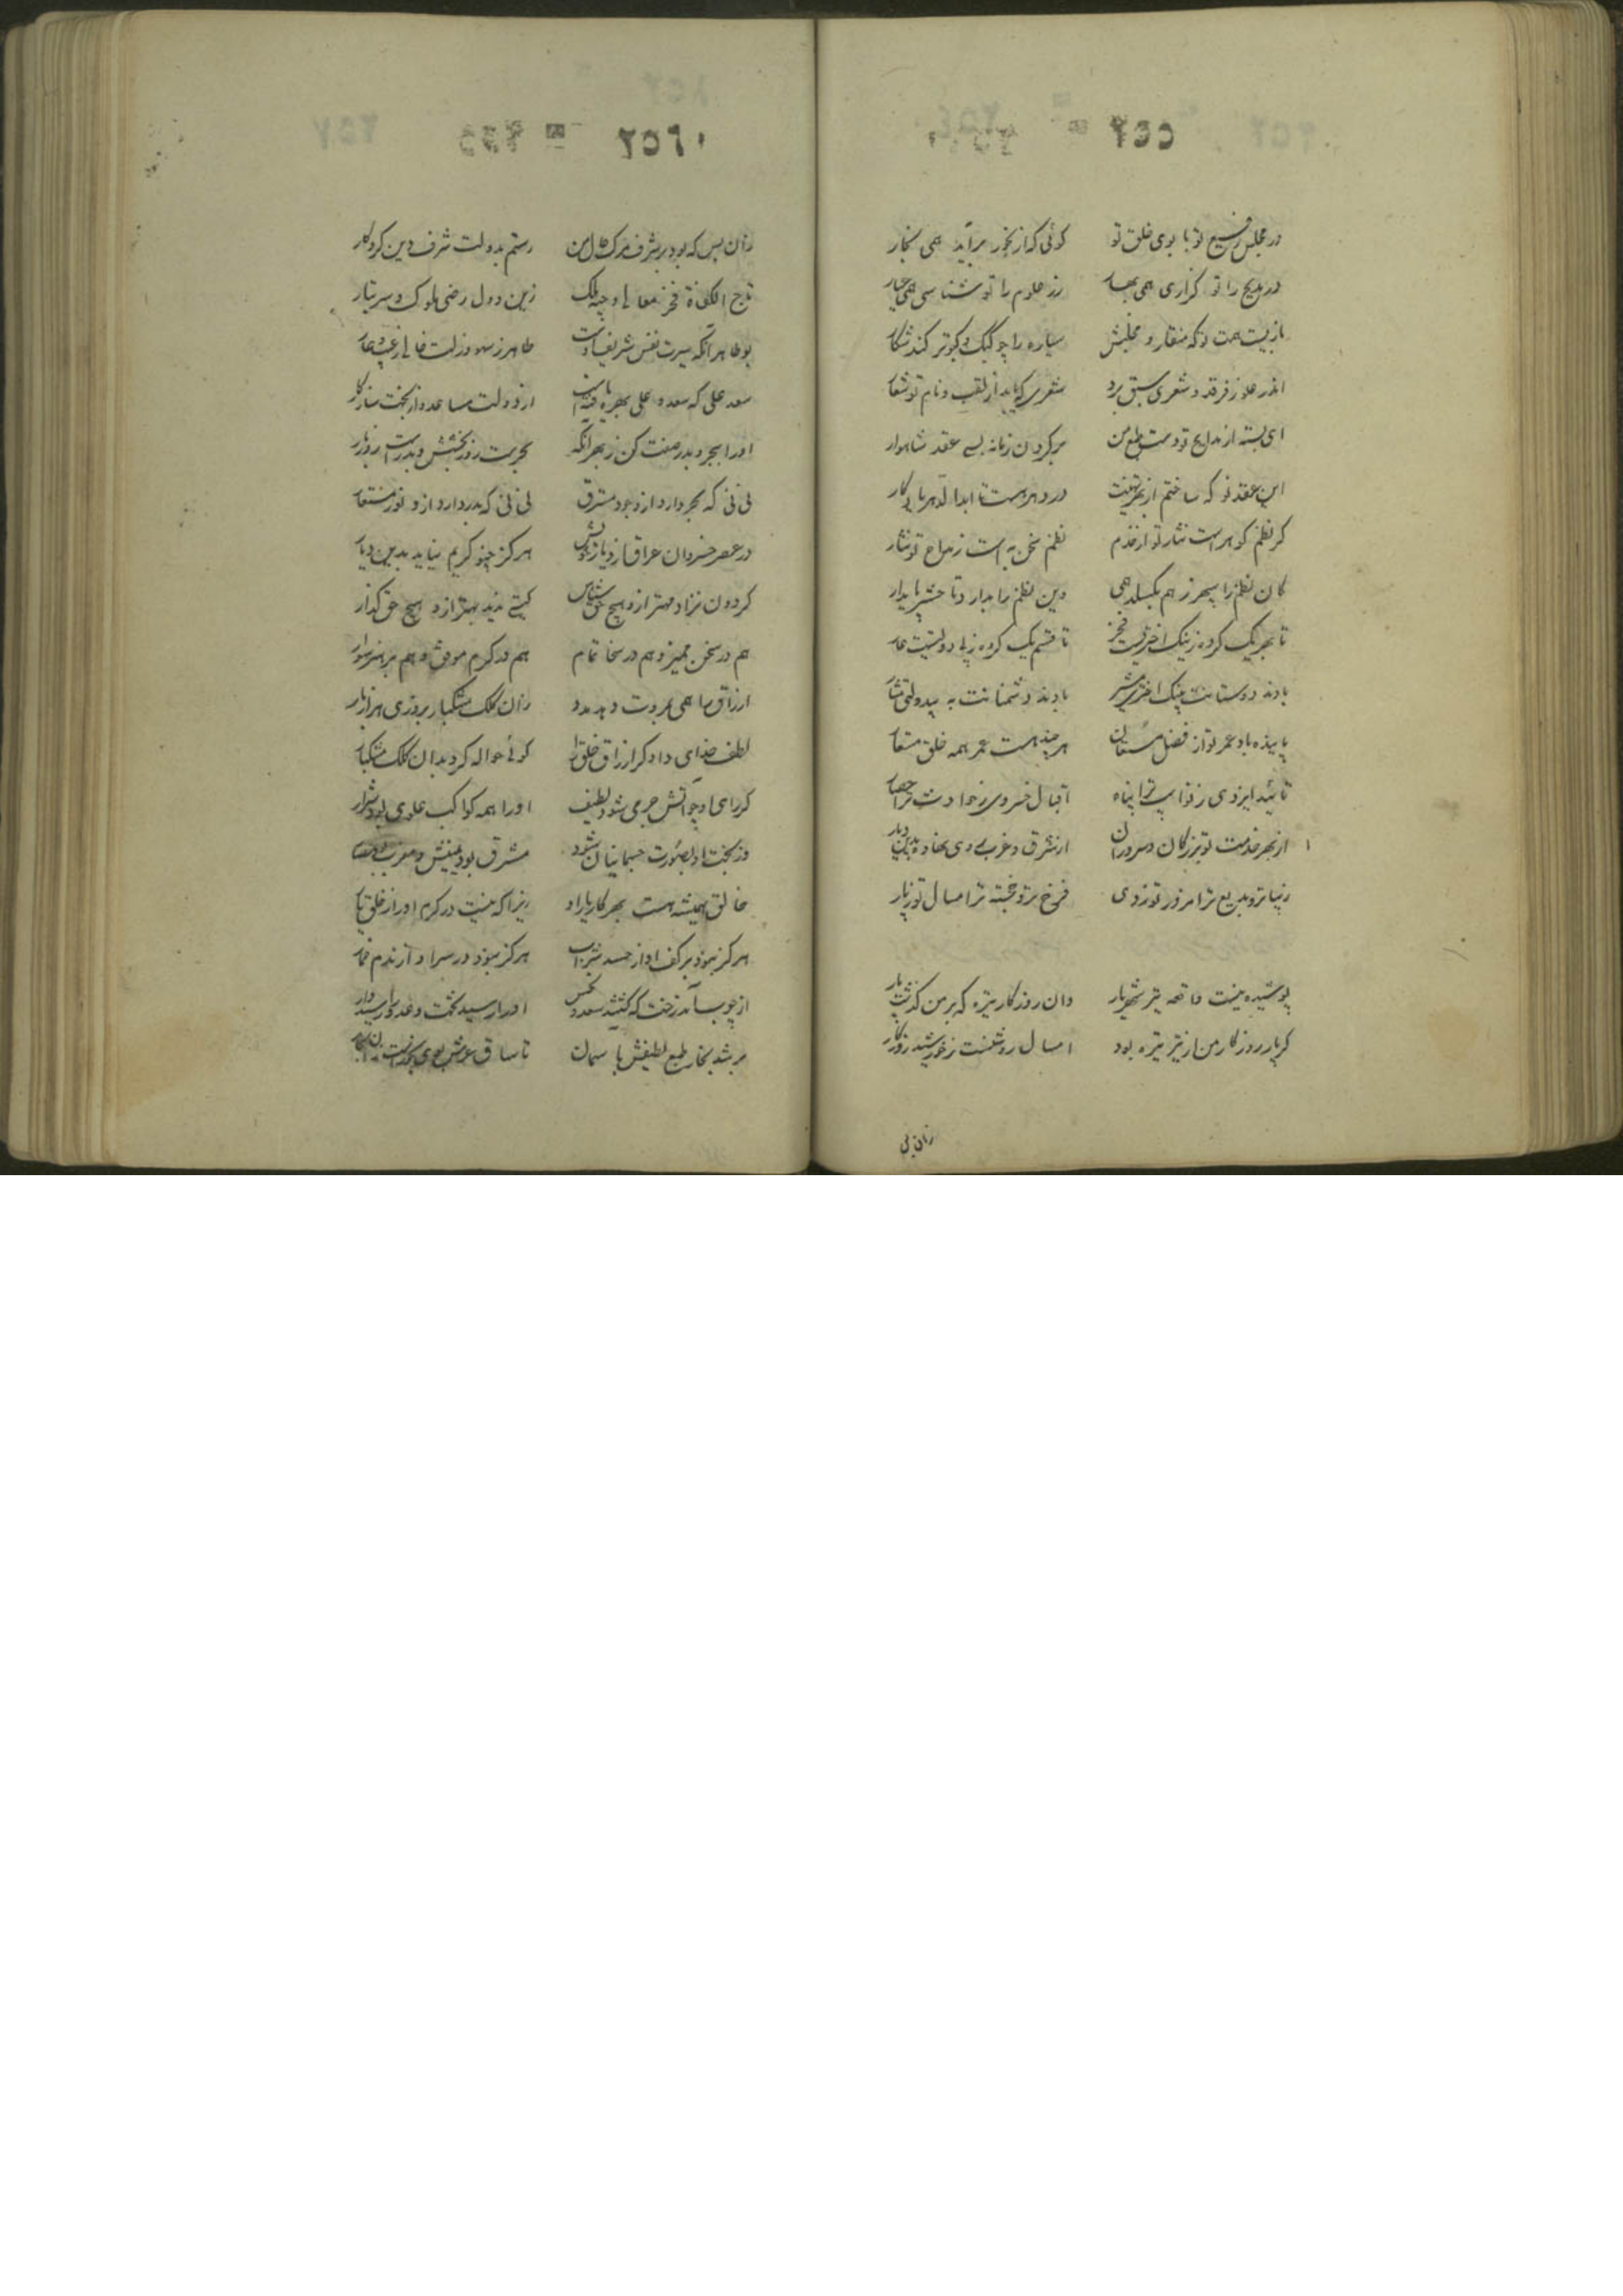 ۲۵۵
در مجلس رفیع تو با بوی خلق تو کوئی که از بخور برآید همی بخار
در مدیح را تو کزاری همی بها زر علوم را تو شناسی همی عیار
سیاره را چو کبک و کبوتر کند شکار
اندر علو ز فرقد و شعری سبق برد شعری که یابد از لقب و نام تو شعار
ای بسته از مدایح تو دست طبع من بر کردن زمانه بسی عقد شاهوار
این عقد نو که ساختم از بهر تهنیت در دهر هست تا ابدالدهر یادکار
کر نظم کوهر است نثار تو از خدم نظم سخن به است ز مداح تو نثار
کان نظم را سپهر ز هم بکسلد همی وین نظم را بدارد تا حشر پایدار
تا بهر یک کروه ز نیک اختریست فخر تا قسم یک کروه ز بی دولتیست عار
بادند دوستانت به نیک اختری مشیر بادند دشمنانت به بیدولتی مشار
پاینده باد عمر تو از فضل مستعان هر چند هست عمر همه خلق مستعار
تائید ایزدی ز نوایب ترا پناه اقبال خسروی ز حوادث ترا حصار
از بهر خدمت تو بزرکان و سروران از شرق و غرب روی نهاده بدین دیار
زیبا تر و بدیع ترا مروز تو ز دی فرخ تر و خجسته ترا مسال تو ز پار
پوشیده نیست واقعه تیر شهریار وان روزکار تیره که بر من کذشت پار
کر پار روزکار من از تیر تیره بود امسال روشنست ز خورشید روزکار
زان پس
۲۵۶
زان پس که بود بر شرف مرک حال من رستم بدولت شرف دین کردکار
تاج الکفاة فخر معالی وجیه ملک زین دول رضی ملوک و سر تبار
بوطاهر آنکه سیرت نفس شریف اوست طاهر ز سهو و زلت خالی ز عیب و عار
سعد علی که سعد و علی بهره یافته است از دولت مساعد و از بخت سازکار
او را ببحر و بدر صفت کن ز بهر آنکه بحریست روز بخشش و بدریست روز بار
نی نی که بحر دارد از وجود مسترق نی نی که بدر دارد ازو نور مستعار
در عصر خسروان عراق از دیار خویش هرکز چنو کریم نیاید بدین دیار
کردون نزاد مهتر ازو هیچ حق شناس کیتی ندید بهتر ازو هیچ حق کذار
هم در سخن ممیز و هم در سخا تمام هم در کرم موفق و هم بر هنر سوار
ارزاق ما همی بمروت دهد مدد زان کلک مشکبار بروزی هزار بار
لطف خدای داد کر ارزاق خلق را کوئی حواله کرد بدان کلک مشکبار
کر رای او چو آتش جرمی شود لطیف او را همه کواکب علوی بود شرار
ور بخت او بصورت جسمانیان شود مشرق بود یمینش و مغرب بود یسار
خالق همیشه هست بهر کار یار او زیرا که نیست در کرم او را ز خلق یار
هرکز نبود بر کف او از حسد شراب هرکز نبود در سر او از ندم خمار
از چوب یک درخت که کشتند سعد و نحس او را رسید تخت و عدو را رسید دار
بر شد بخار طبع لطیفش بآسمان